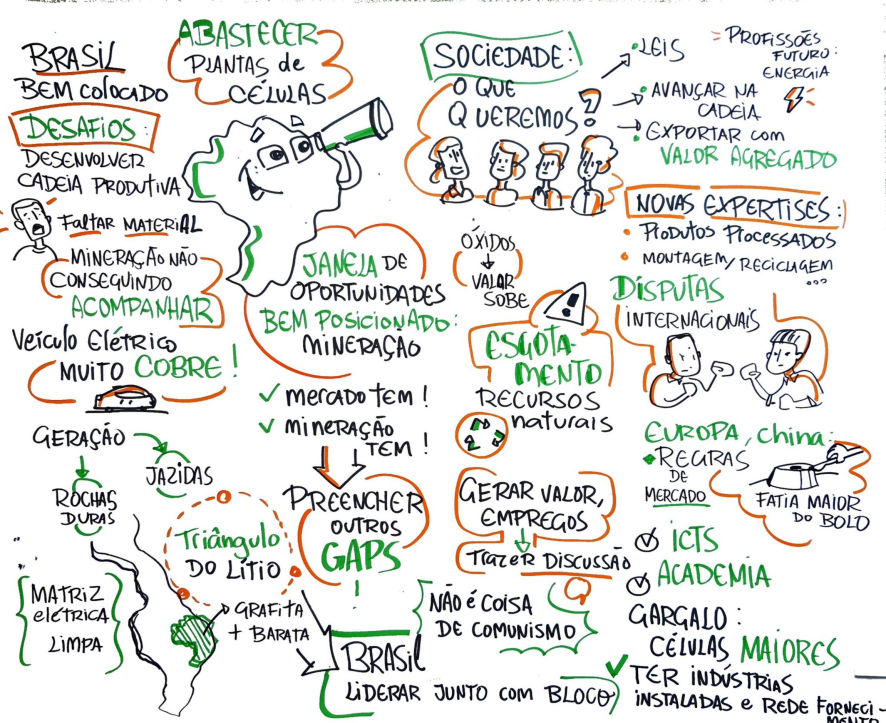 BRASIL
BEM COLOCADO
DESAFIOS:
DESENVOLVER
CADEIA PRODUTIVA
FALTAR MATERIAL
MINERAÇÃO NÃO
CONSEGUINDO
ACOMPANHAR
VEÍCULO ELÉTRICO
MUITO COBRE!
GERAÇÃO
JAZIDAS
ROCHAS
DURAS
MATRIZ
ELÉTRICA
LIMPA
ABASTECER
PLANTAS de
CÉLULAS
JANELA DE
OPORTUNIDADES
BEM POSICIONADO:
MINERAÇÃO
✓ MERCADO TEM!
✓ MINERAÇÃO
TEM!
PREENCHER
OUTROS
GAPS
Triângulo
DO LÍTIO
GRAFITA
+ BARATA
BRASIL
LIDERAR JUNTO COM BLOCO
SOCIEDADE:
O QUE
QUEREMOS?
• LEIS
= PROFISSÕES
FUTURO:
ENERGIA
• AVANÇAR NA
CADEIA
• EXPORTAR com
VALOR AGREGADO
NOVAS EXPERTISES:
• PRODUTOS PROCESSADOS
• MONTAGEM/RECICLAGEM
...
ÓXIDOS
VALOR
SOBE
!
ESGOTA-
MENTO
RECURSOS
naturais
DISPUTAS
INTERNACIONAIS
GERAR VALOR,
EMPREGOS
TRAZER DISCUSSÃO
NÃO é COISA
DE COMUNISMO
EUROPA, China:
• REGRAS
DE
MERCADO
FATIA MAIOR
DO BOLO
✓ ICTS
✓ ACADEMIA
GARGALO:
CÉLULAS MAIORES
✓ TER INDÚSTRIAS
INSTALADAS e REDE FORNECI-
MENTO